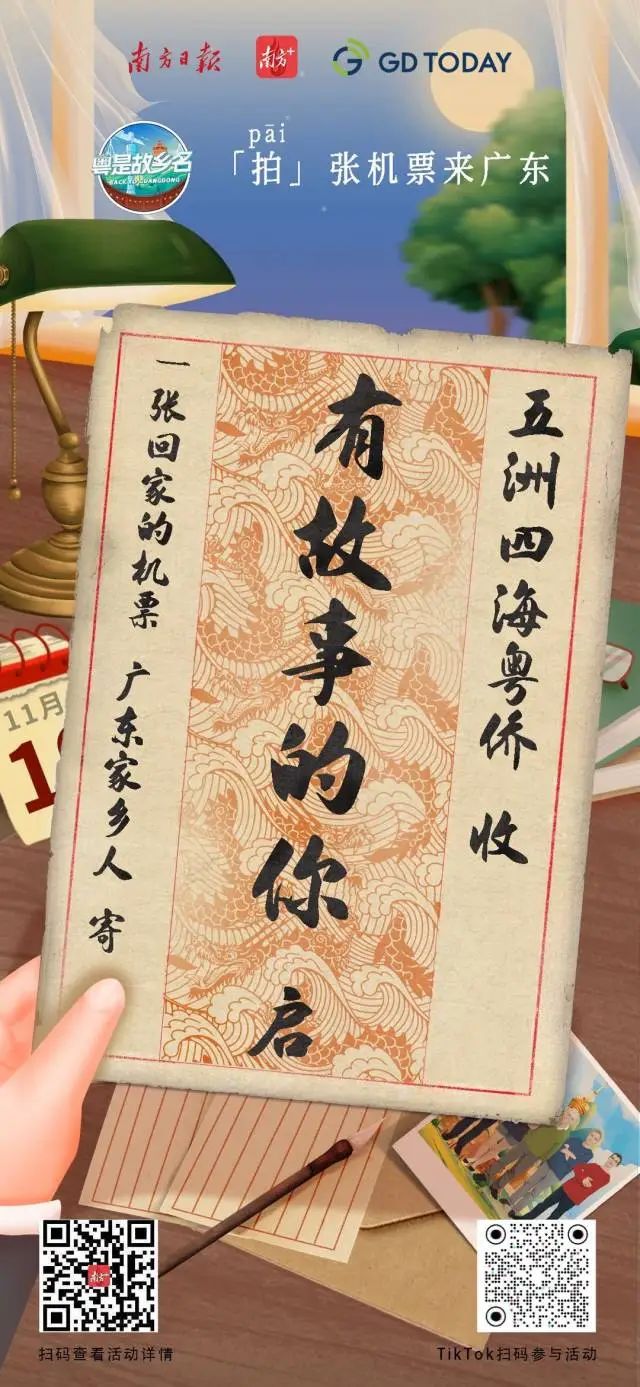 南方日報
南方+
GD TODAY
粤是故乡名
BACK TO GUANGDONG
pāi
「拍」张机票来广东
五洲四海粤侨 收
有故事的你 启
一张回家的机票 广东家乡人 寄
11月
南方+
扫码查看活动详情
TikTok扫码参与活动